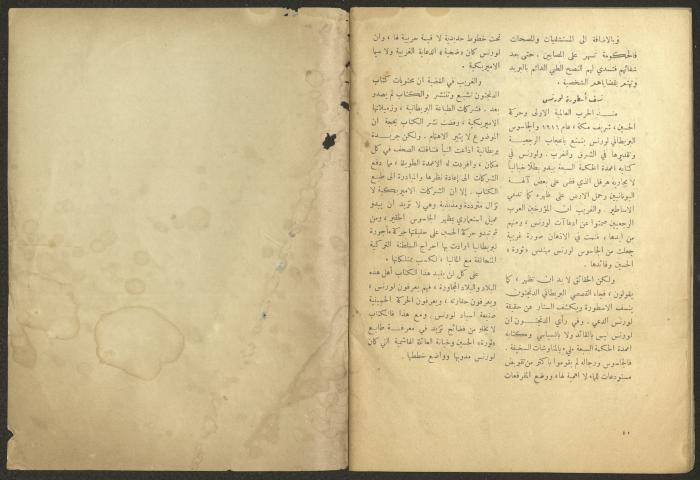 وبالاضافة الى المستشفيات والمصحات
فالحكومة تسهر على المصابين ، حتى بعد
شفائهم فتسدي لهم النصح الطبي الدائم بالبريد
وتهتم بقضاياهم الشخصية .
نسف أسطورة لورنس
منذ الحرب العالمية الاولى وحركة
الحسين ، شريف مكة ، عام ١٩١٦ والجاسوس
البريطاني لورنس يتمتع باعجاب الرجعية
وتقديرها في الشرق والغرب . ولورنس في
كتابه اعمدة الحكمة السبعة يبدو بطلا خيالياً
لا يجاريه هرقل الذي قضى على بعض آلهة
اليونانيين وحمل الارض على ظهره كما تدعي
الاساطير . والغريب ان المؤرخين العرب
الرجعيين صمتوا عن ادعاآت لورنس ، ومنهم
من ايدها ، فنمت في الاذهان صورة غريبة
جعلت من الجاسوس لورنس مهندس «ثورة»
الحسين وقائدها .
ولكن الحقائق لا بد ان تظهر ، كما
يقولون ، فجاء القصصي البريطاني الدنجتون
ينسف الاسطورة ويكشف الستار عن حقيقة
لورنس الدعي . وفي رأي الدنجتون ان
لورنس ليس بالقائد ولا بالسياسي وكتابه
اعمدة الحكمة السبعة مليء بالمناوشات السخيفة .
فالجاسوس ورجاله لم يقوموا باكثر من تقويض
مستودعات للماء لا اهمية لها ، ووضع المفرقعات
تحت خطوط حديدية لا قيمة حربية لها ، وان
لورنس كان «ضحية» الدعاية الغربية ولا سيما
الاميركية .
والغريب في القضية ان محتويات كتاب
الدنجتون تشيع وتنتشر والكتاب لم يصدر
بعد . فشركات الطباعة البريطانية ، وزميلاتها
الاميريكية ، رفضت نشر الكتاب بحجة ان
الموضوع لا يثير الاهتمام . ولكن جريدة
بريطانية اذاعت النبأ فتناقلته الصحف في كل
مكان ، وافردت له الاعمدة الطويلة ، مما دفع
الشركات الى إعادة نظرها والمبادرة الى طبع
الكتاب . إلا ان الشركات الاميريكية لا
تزال مترددة ومذبذبة وهي لا تريد ان يبدو
عميل استعماري بمظهر الجاسوس الحقير ، ومن
ثم تبدو حركة الحسين على حقيقتها حركة مأجورة
لبريطانيا ارادت بها اخراج السلطنة التركية
المتحالفة مع المانيا ، لكسب ممتلكاتها .
على كل لن يفيد هذا الكتاب أهل هذه
البلاد والبلاد المجاورة ، فهم يعرفون لورنس ،
ويعرفون حقارته ، ويعرفون الحركة الحسينية
صنيعة اسياد لورنس . ومع هذا فالكتاب
لا يخلو من فضائح تزيد في معرفة طابع
«ثورة» الحسين وخيانة العائلة الهاشمية التي كان
لورنس مدربها وواضع خططها .